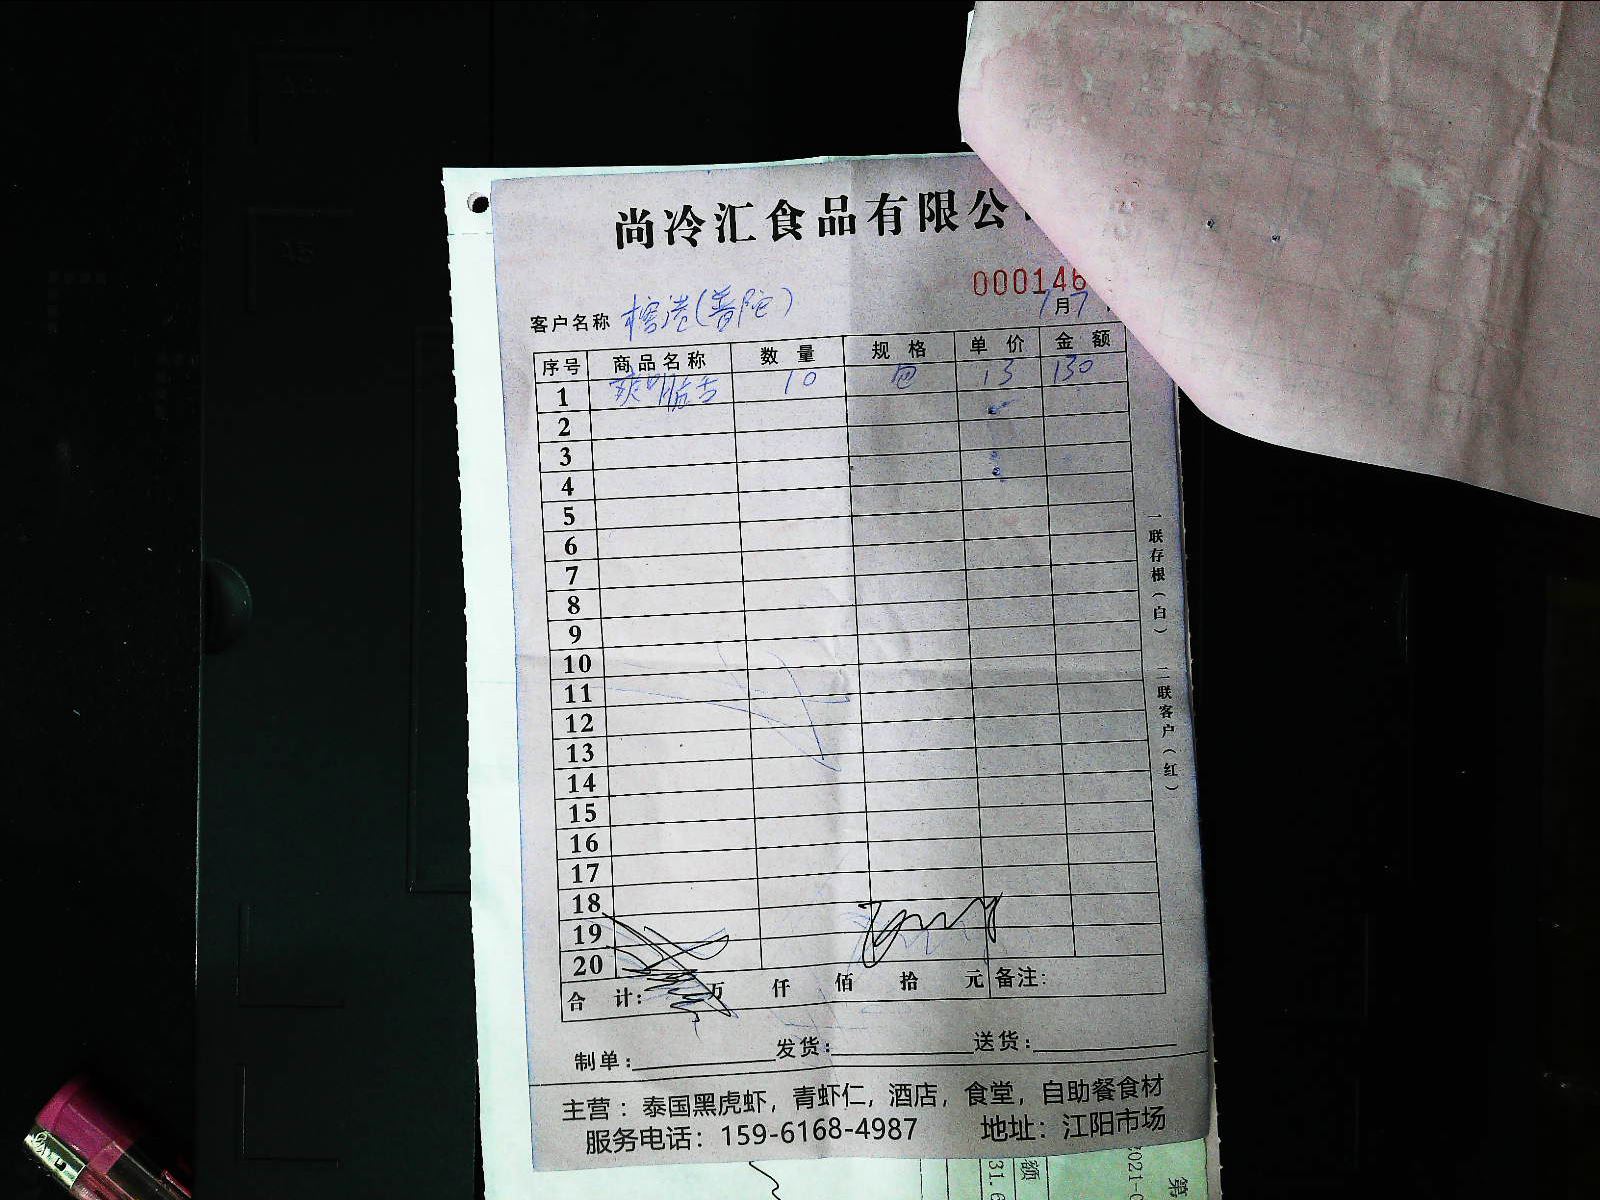 尚冷汇食品有限公
000146
客户名称 榕港(普陀) 1月7
序号 商品名称 数量 规格 单价 金额
1 10 包 13 130
2
3
4
5
6
7
8
9
10
11
12
13
14
15
16
17
18
19
20
合计: 万 仟 佰 拾 元 备注:
制单: 发货: 送货:
主营：泰国黑虎虾，青虾仁，酒店，食堂，自助餐食材
服务电话：159-6168-4987 地址：江阳市场
一联存根(白) 二联客户(红)
额
31.6
2021-0
第